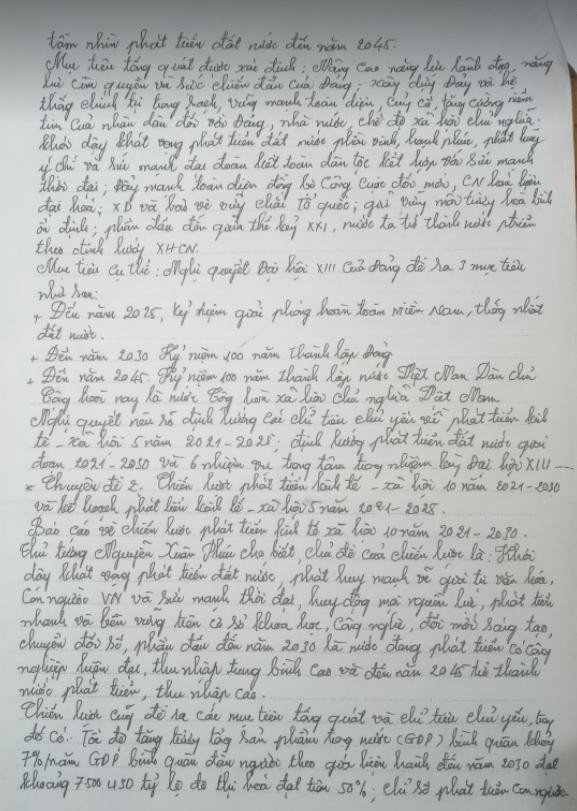 tầm nhìn phát triển đất nước đến năm 2045.
Mục tiêu tổng quát được xác định: Nâng cao năng lực lãnh đạo, năng
lực cầm quyền và sức chiến đấu của Đảng; xây dựng Đảng và hệ
thống chính trị trong sạch, vững mạnh toàn diện; củng cố, tăng cường niềm
tin của nhân dân đối với Đảng, nhà nước, chế độ xã hội chủ nghĩa.
khơi dậy khát vọng phát triển đất nước phồn vinh, hạnh phúc, phát huy
ý chí và sức mạnh đại đoàn kết toàn dân tộc kết hợp với sức mạnh
thời đại; đẩy mạnh toàn diện đồng bộ công cuộc đổi mới, CN hoá hiện
đại hoá; XD và bảo vệ vững chắc Tổ quốc; giữ vững môi trường hoà bình
ổn định; phấn đấu đến giữa thế kỷ XXI, nước ta trở thành nước ptriển
theo định hướng XHCN.
Mục tiêu cụ thể: Nghị quyết Đại hội XIII của Đảng đề ra 3 mục tiêu
như sau:
+ Đến năm 2025, kỷ niệm giải phóng hoàn toàn Miền Nam, thống nhất
đất nước.
+ Đến năm 2030 Kỷ niệm 100 năm thành lập Đảng
+ Đến năm 2045. Kỷ niệm 100 năm thành lập nước Việt Nam Dân chủ
Cộng hoà nay là nước Cộng hoà xã hội chủ nghĩa Việt Nam
Nghị quyết nêu số định hướng các chỉ tiêu chủ yếu về phát triển kinh
tế - xã hội 5 năm 2021 - 2025; định hướng phát triển đất nước giai
đoạn 2021 - 2030 và 6 nhiệm vụ trọng tâm trong nhiệm kỳ Đại hội XIII ---
* Chuyên đề 2. Chiến lược phát triển kinh tế - xã hội 10 năm 2021 - 2030
và kế hoạch phát triển kinh tế - xã hội 5 năm 2021 - 2025.
Báo cáo về chiến lược phát triển kinh tế xã hội 10 năm 2021 - 2030.
Thủ tướng Nguyễn Xuân Phúc cho biết, chủ đề của chiến lược là: Khơi
dậy khát vọng phát triển đất nước, phát huy mạnh mẽ giá trị văn hoá,
Con người VN và sức mạnh thời đại, huy động mọi nguồn lực, phát triển
nhanh và bền vững trên cơ sở khoa học, Công nghệ, đổi mới sáng tạo,
chuyển đổi số, phấn đấu đến năm 2030 là nước đang phát triển có công
nghiệp hiện đại, thu nhập trung bình cao và đến năm 2045 trở thành
nước phát triển, thu nhập cao.
Chiến lược cũng đề ra các mục tiêu tổng quát và chỉ tiêu chủ yếu, trong
đó có: Tốc độ tăng trưởng tổng sản phẩm trong nước (GDP) bình quân khoảng
7%/năm GDP bình quân đầu người theo giá hiện hành đến năm 2030 đạt
khoảng 7500 USD tỷ lệ đô thị hoá đạt trên 50%; chỉ số phát triển con người